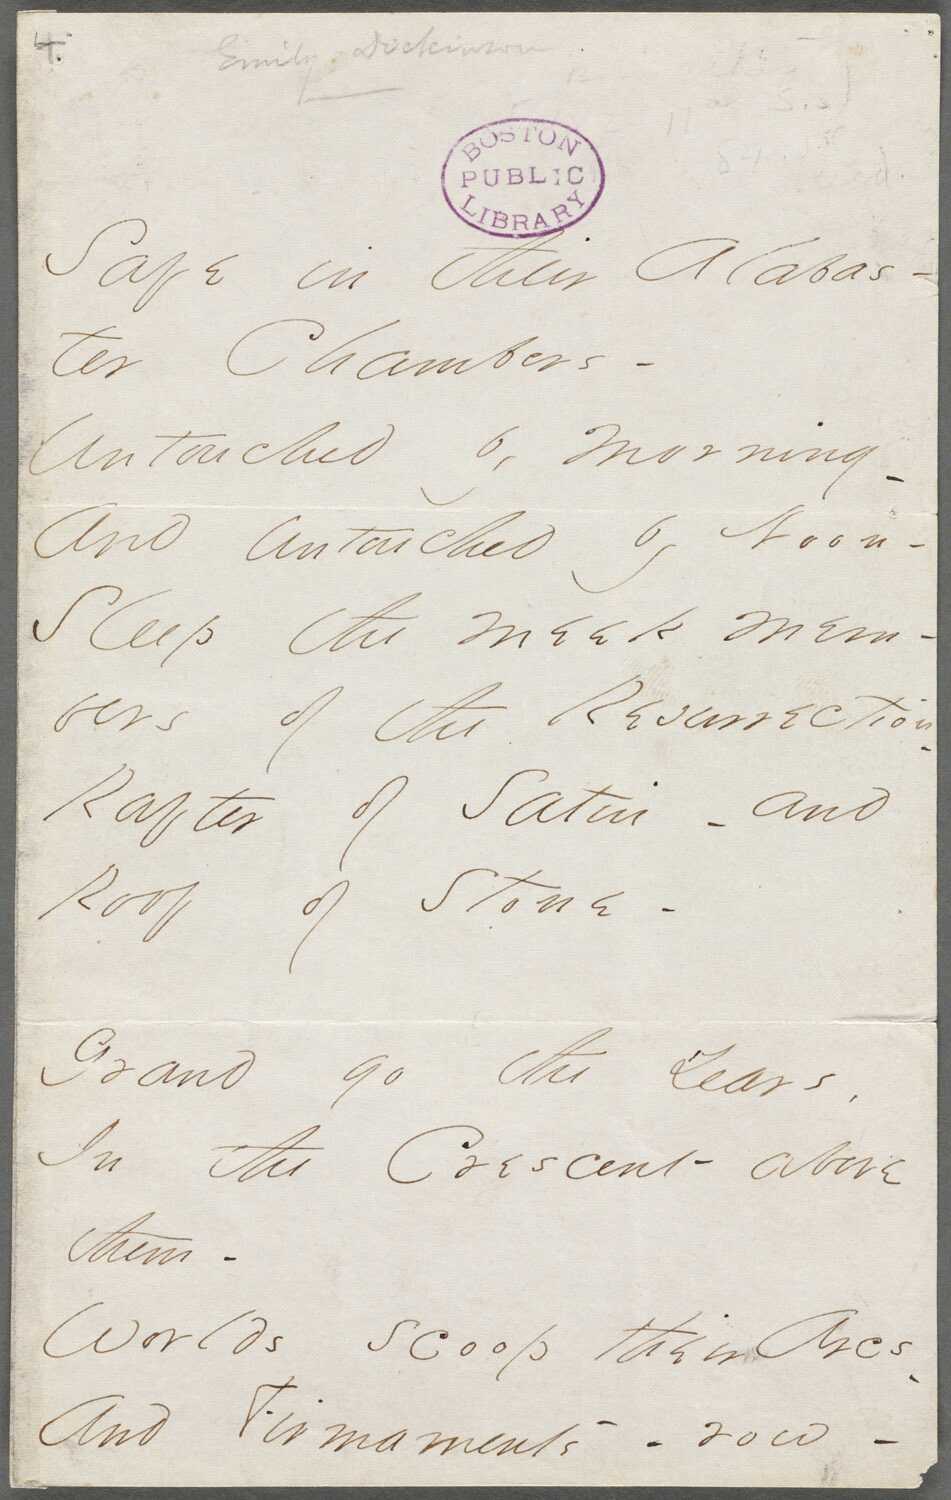 4.
Emily Dickinson
BOSTON
PUBLIC
LIBRARY
Safe in their Alabas-
ter Chambers -
Untouched by Morning -
And untouched by Noon -
Sleep the meek mem-
bers of the Resurrection -
Rafter of Satin - and
Roof of Stone -
Grand go the Years,
In the Crescent above
them -
Worlds scoop their Arcs -
And Firmaments - row -